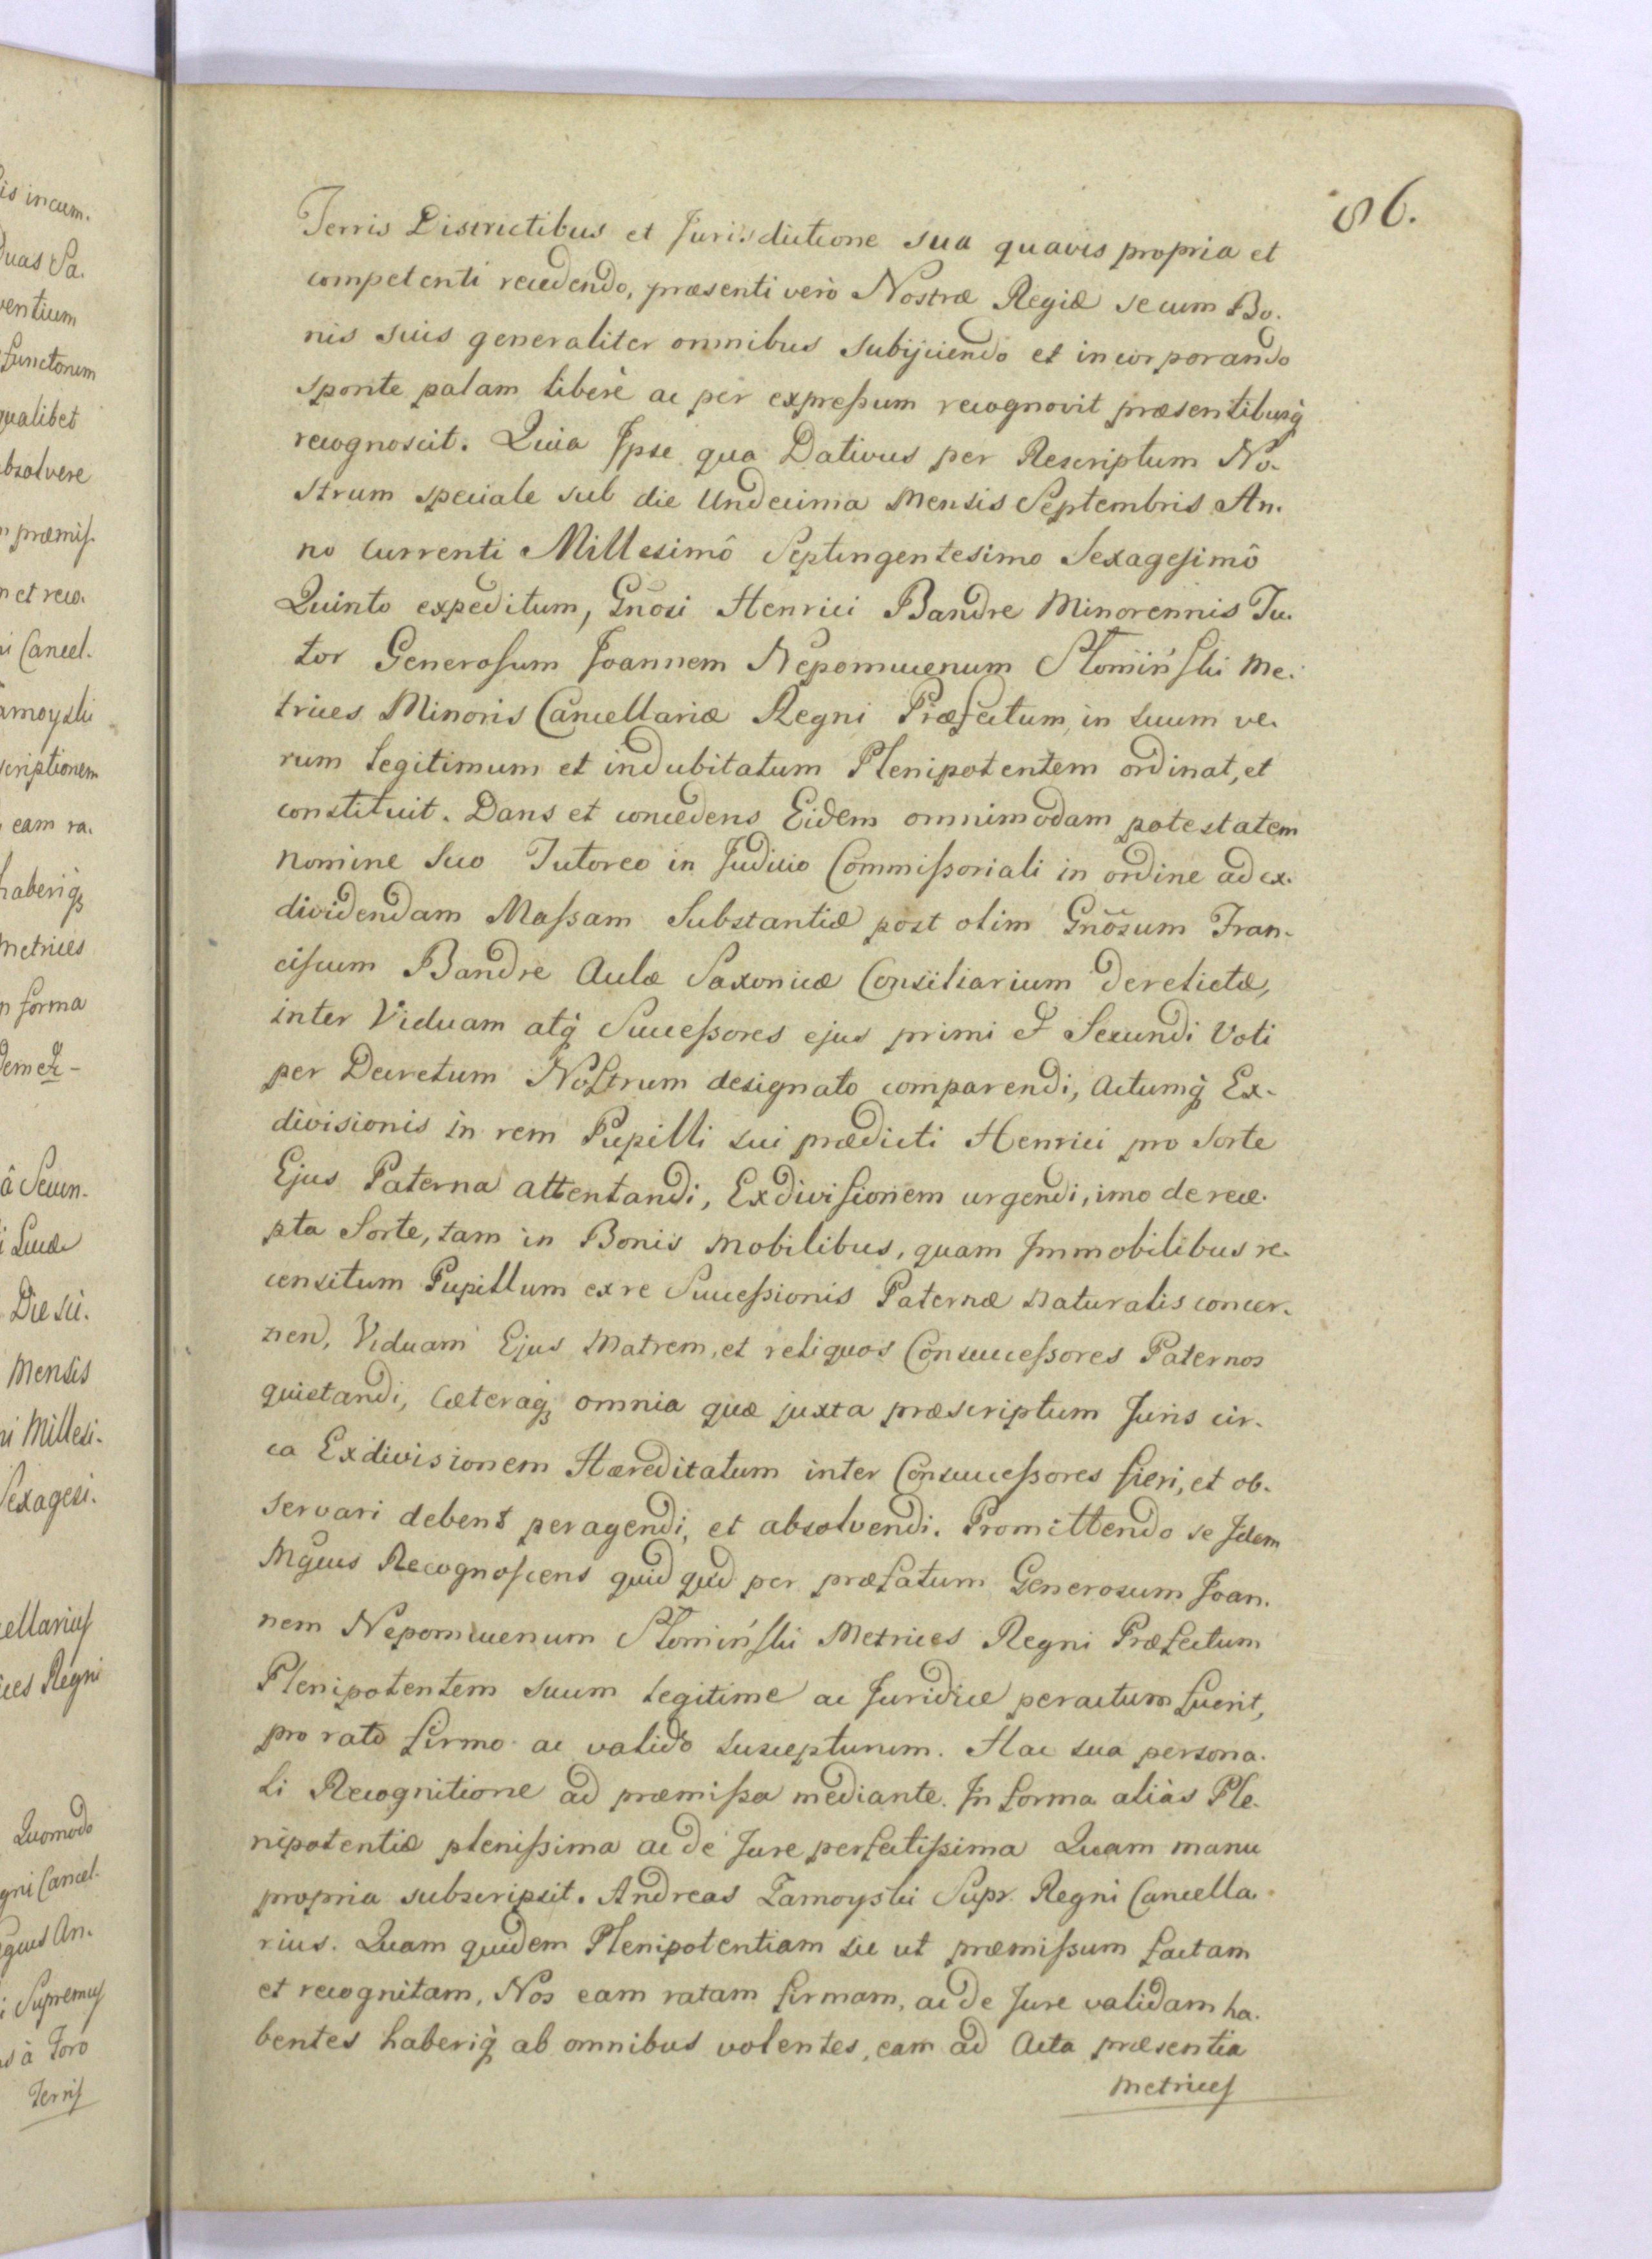 86.
Terris Districtibus et Jurisdictione sua quavis propria et
competenti recedendo, præsenti verò Nostræ Regiæ se cum Bo.
nis suis generaliter omnibus subijciendo et incorporando
sponte palam liberè ac per expreßum recognovit præsentibusq̃
recognoscit. Quia Ipse qua Dativus per Rescriptum No.
strum speciale sub die Undecima Mensis Septembris An.
no Currenti Millesimô Septingentesimo Sexagesimô
Quinto expeditum, Gñosi Henrici Bandre Minorennis Tu.
tor Generosum Joannem Nepomucenum Słomiński Me.
trices Minoris Cancellariæ Regni Præfectum, in suum ve.
rum legitimum et indubitatum Plenipotentem ordinat, et
constituit. Dans et concedens Eidem omnimodam potestatem
nomine Suo Tutoreo in Judicio Commißoriali in ordine ad ex.
dividendam Maßam Substantiæ post olim Gñosum Fran-
ciscum Bandre Aulæ Saxonicæ Consiliarium derelictæ,
inter Viduam atq̃ Succeßores ejus primi et Secundi Voti
per Decretum Nostrum designato comparendi, Actumq̃ Ex-
divisionis in rem Pupilli sui prædicti Henrici pro Sorte
Ejus Paterna attentandi, Exdivisionem urgendi, imo de rece.
pta Sorte, tam in Bonis mobilibus, quam Immobilibus re.
censitum Pupillum ex re Succeßionis Paternæ naturalis concer.
nen, Viduam Ejus Matrem, et reliquos Consucceßores Paternos
quietandi, Cæteraq̃ omnia quæ juxta præscriptum Juris cir.
ca Exdivisionem Hæreditatum inter Consucceßores fieri, et ob.
servari debent peragendi, et absolvendi. Promittendo se Idem
Mg̃cus Recognoscens quidquid per præfatum Generosum Joan.
nem Nepomucenum Słomiński Metrices Regni Præfectum
Plenipotentem suum legitime ac Juridice peractum fuerit,
pro rato firmo ac valido suscepturum. Hac sua persona.
li Recognitione ad præmißa mediante. In forma aliàs Ple.
nipotentiæ plenißima ac de Jure perfectißima Quam manu
propria subscripsit. Andreas Zamoyski Supr. Regni Cancella
rius. Quam quidem Plenipotentiam sic ut præmißum factam
et recognitam, Nos eam ratam firmam, ac de Jure validam ha.
bentes haberiq̃ ab omnibus volentes, eam ad Acta præsentia
Metrices